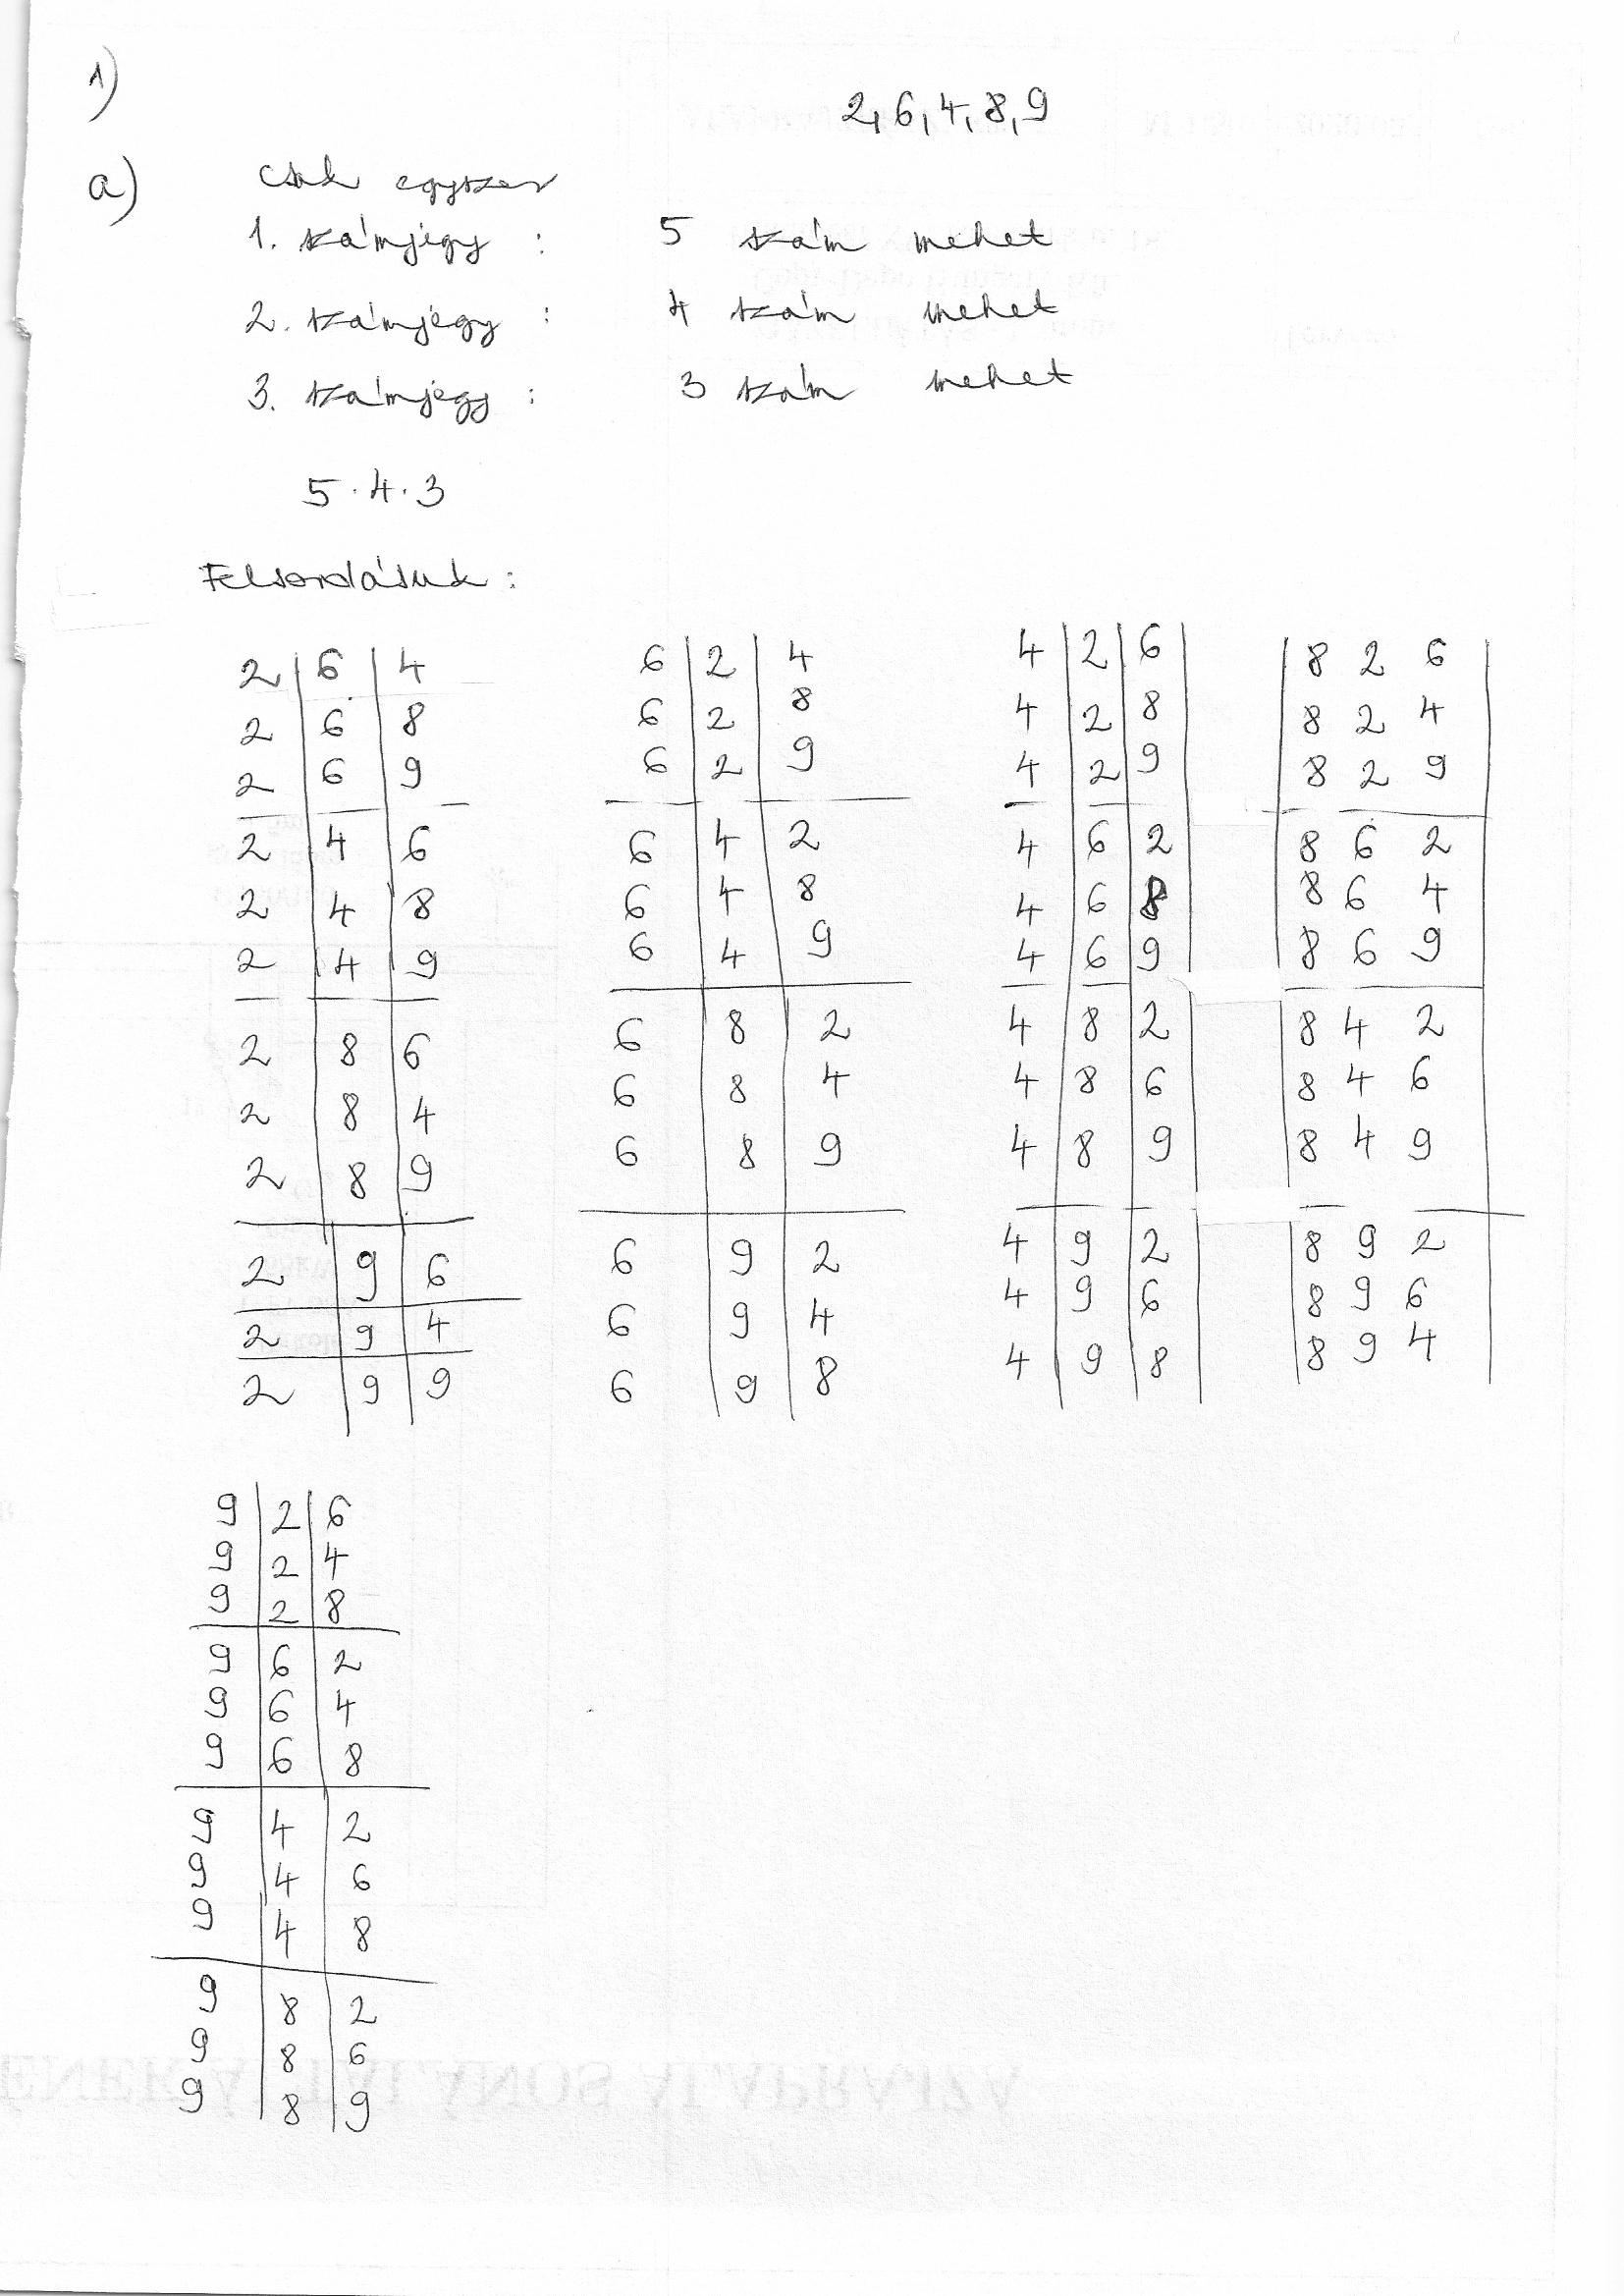 1)
2, 6, 4, 8, 9
a) Csak egyszer
1. számjegy : 5 szám mehet
2. számjegy : 4 szám mehet
3. számjegy : 3 szám mehet
5 · 4 · 3
Felsorolásuk :
2 6 4
2 6 8
2 6 9
2 4 6
2 4 8
2 4 9
2 8 6
2 8 4
2 8 9
2 9 6
2 9 4
2 9 9
6 2 4
6 2 8
6 2 9
6 4 2
6 4 8
6 4 9
6 8 2
6 8 4
6 8 9
6 9 2
6 9 4
6 9 8
4 2 6
4 2 8
4 2 9
4 6 2
4 6 8
4 6 9
4 8 2
4 8 6
4 8 9
4 9 2
4 9 6
4 9 8
8 2 6
8 2 4
8 2 9
8 6 2
8 6 4
8 6 9
8 4 2
8 4 6
8 4 9
8 9 2
8 9 6
8 9 4
9 2 6
9 2 4
9 2 8
9 6 2
9 6 4
9 6 8
9 4 2
9 4 6
9 4 8
9 8 2
9 8 6
9 8 9